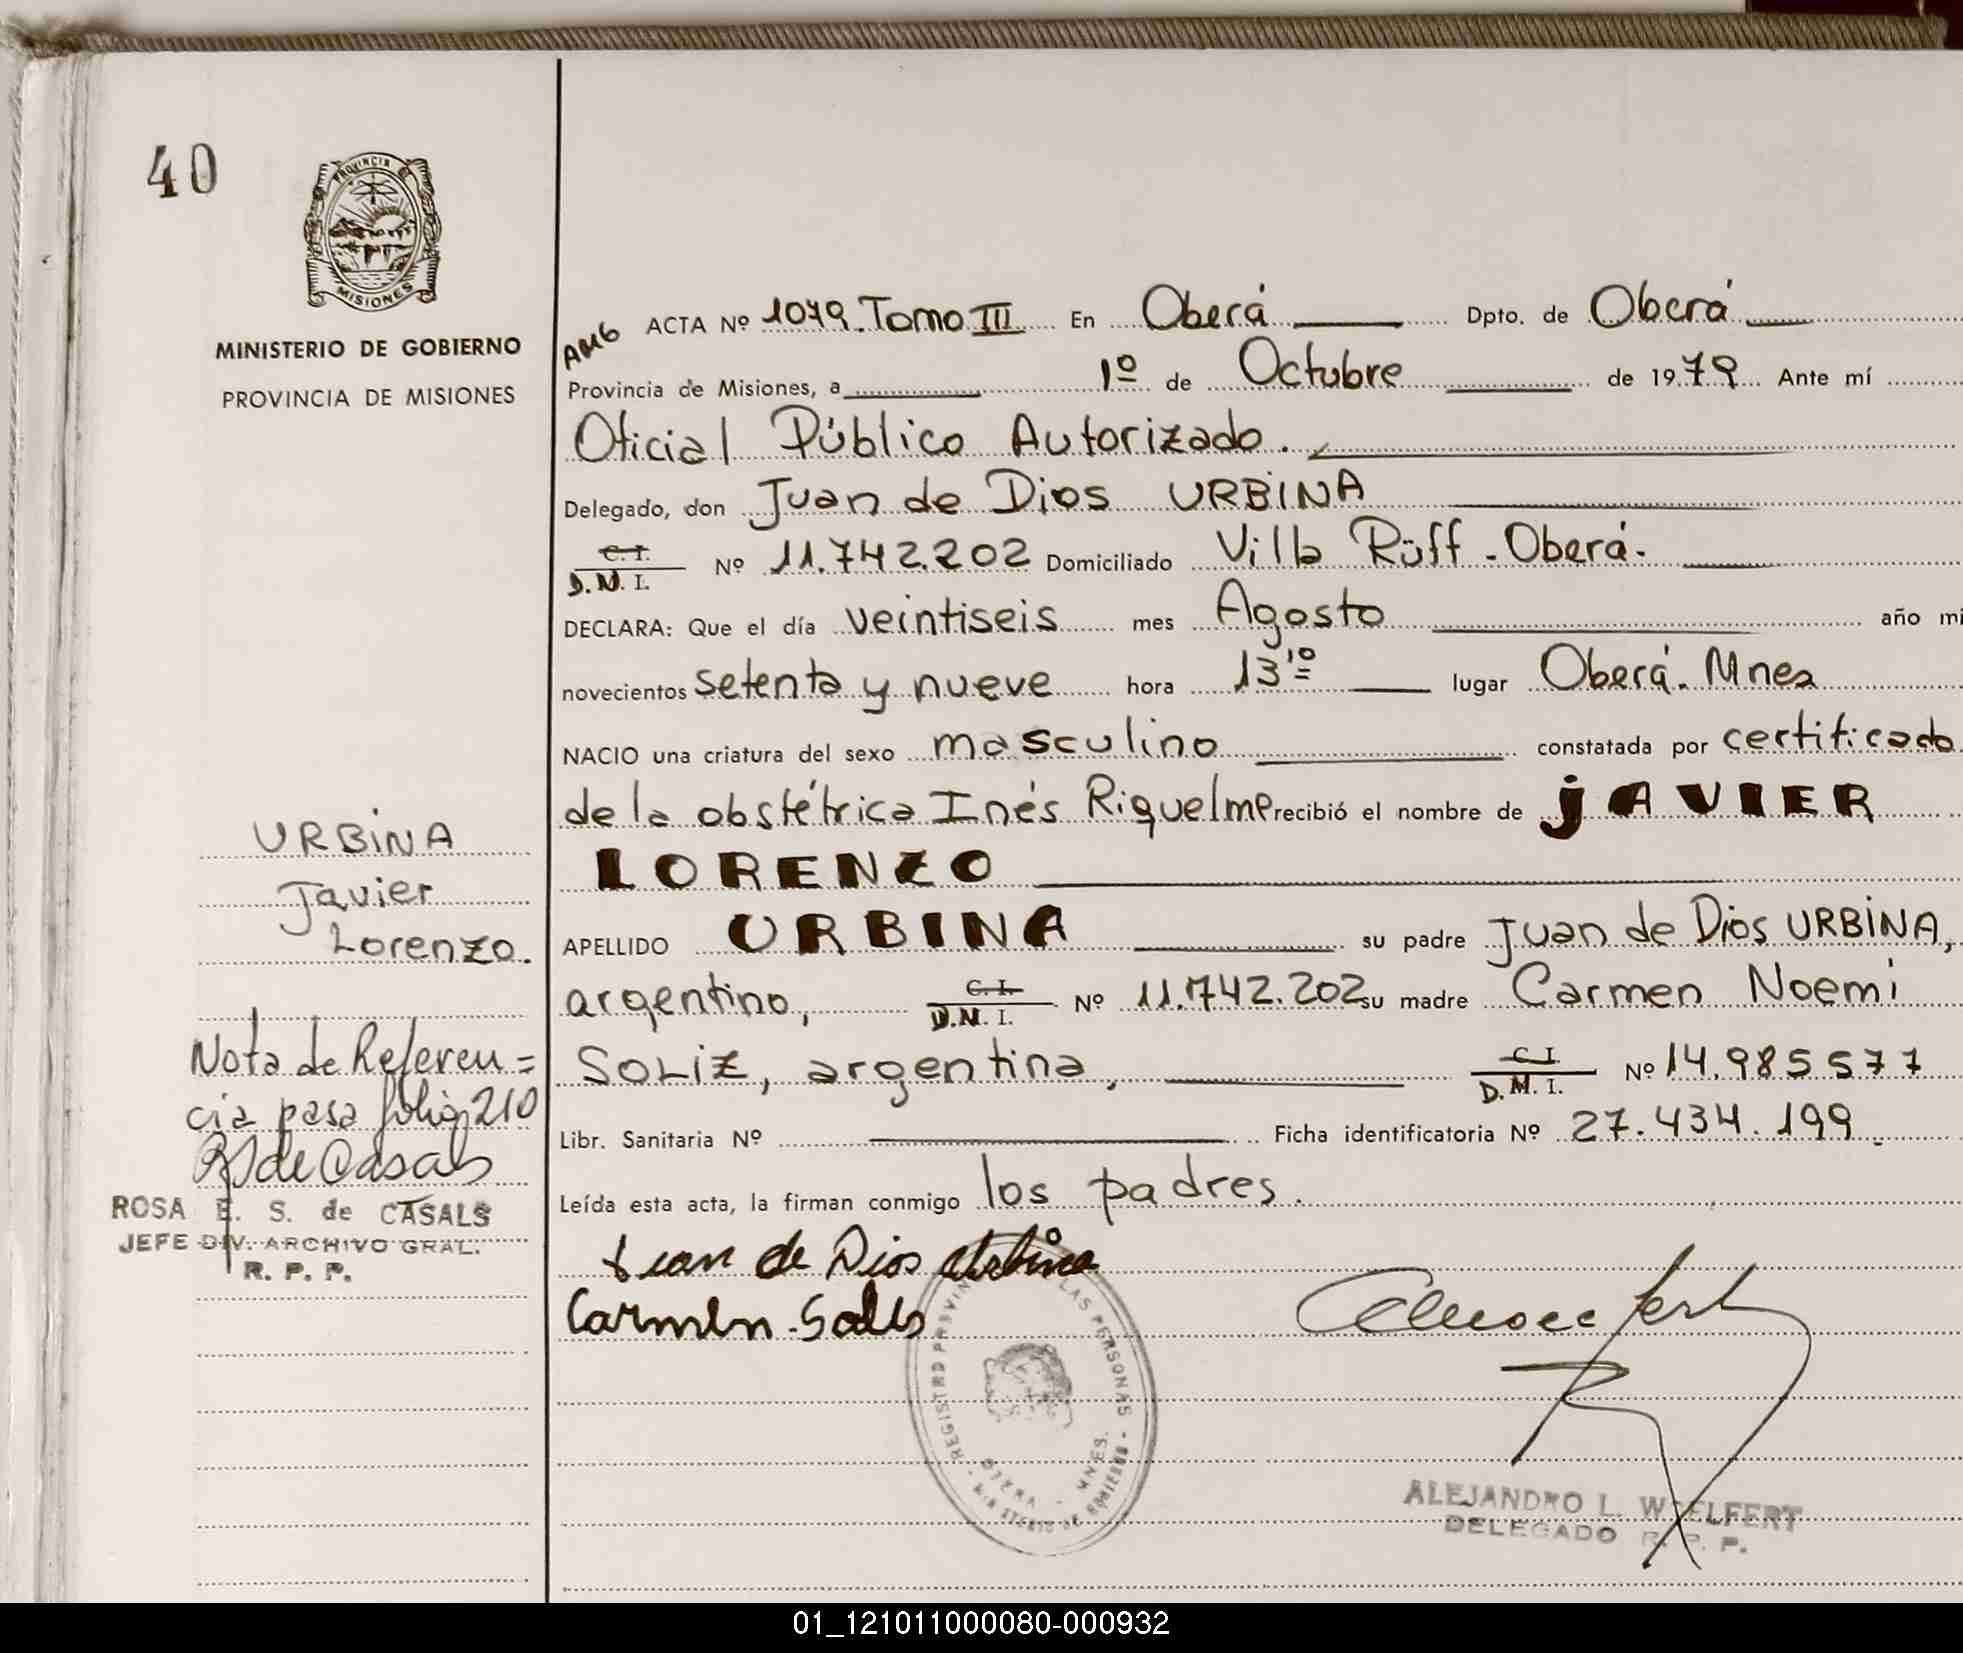 40
PROVINCIA
MISIONES
MINISTERIO DE GOBIERNO
PROVINCIA DE MISIONES
ACTA Nº 1079. Tomo III En Oberá Dpto. de Oberá
Provincia de Misiones, a 1º de Octubre de 1979 Ante mí
Oficial Público Autorizado.
Delegado, don Juan de Dios URBINA
C.I.
D.N.I. Nº 11.742.202 Domiciliado Villa Rüff - Oberá.
DECLARA: Que el día veintiseis mes Agosto año mi
novecientos setenta y nueve hora 13'10 lugar Oberá. Mnes
NACIO una criatura del sexo masculino constatada por certificado
de la obstétrica Inés Riquelme recibió el nombre de JAVIER
LORENZO
APELLIDO URBINA su padre Juan de Dios URBINA,
argentino, C.I. D.N.I. Nº 11.742.202 su madre Carmen Noemi
SOLIZ, argentina, C.I. D.N.I. Nº 14.985577
Libr. Sanitaria Nº Ficha identificatoria Nº 27.434.199.
Leída esta acta, la firman conmigo los padres.
Juan de Dios Urbina
Carmen.
URBINA
Javier
Lorenzo.
Nota de Referen=
cia pasa folio 210
de Casals
ROSA E. S. de CASALS
JEFE DIV. ARCHIVO GRAL.
R. P. P.
REGISTRO PROVIN LAS PERSONAS
OBERA - MNES.
ALEJANDRO L. WOELFERT
DELEGADO R. P. P.
01_121011000080-000932